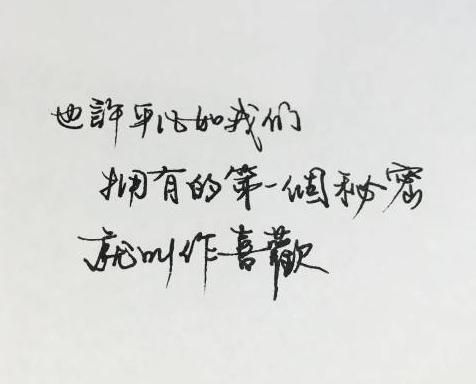 也許平凡如我们
擁有的第一個秘密
就叫作喜歡